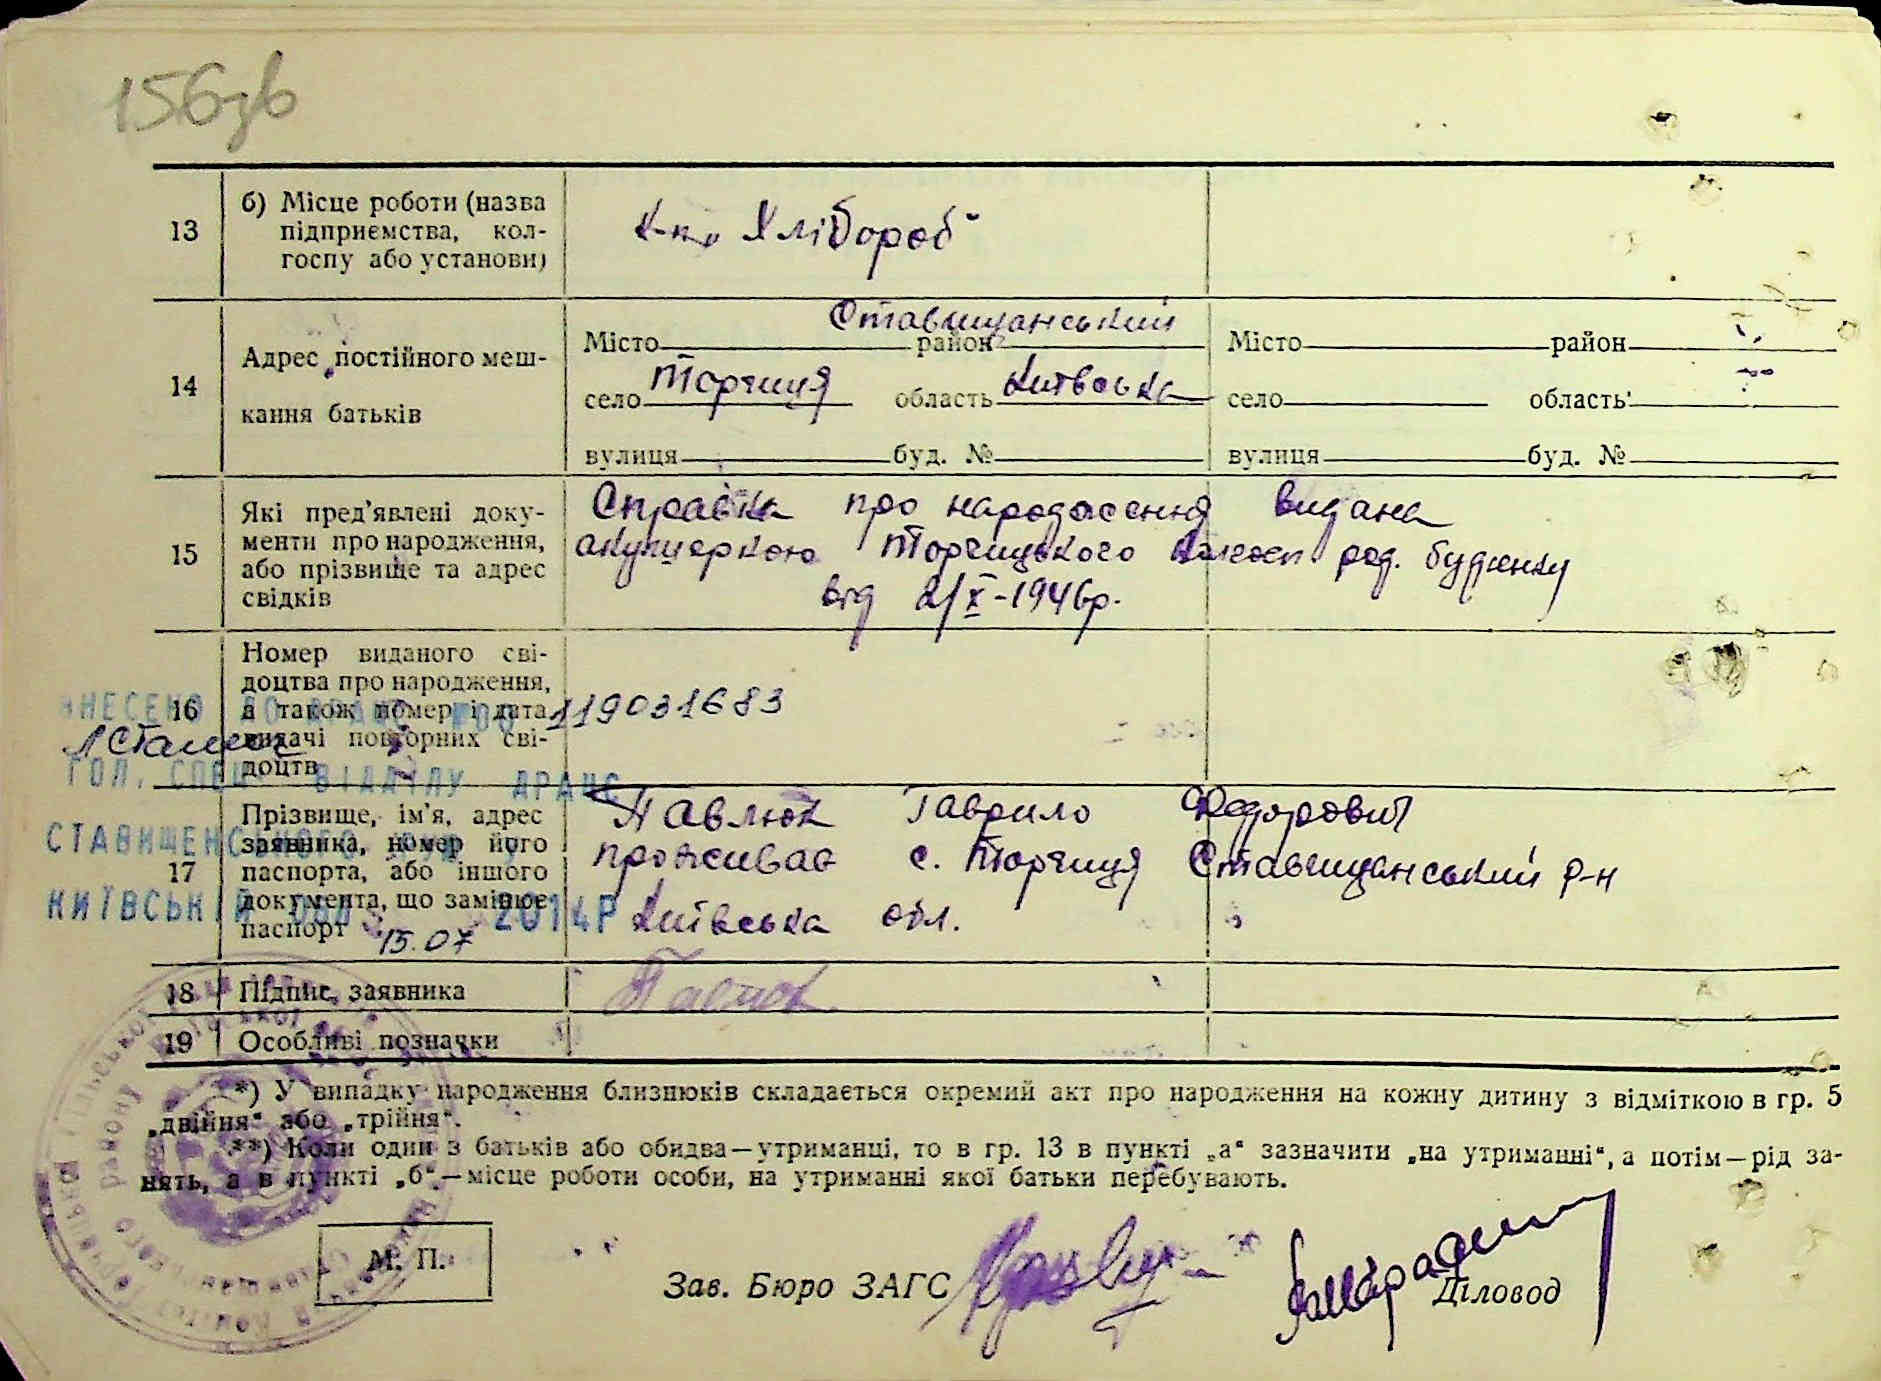 156зв
13
б) Місце роботи (назва
підприємства, кол-
госпу або установи)
к-п „Хлібороб"
14
Адрес постійного меш-
кання батьків
Ставищанський
Місто район
село Торчиця область Київська
вулиця буд. №
Місто район
село область
вулиця буд. №
15
Які пред'явлені доку-
менти про народження,
або прізвище та адрес
свідків
Справка про народження видана
акушеркою Торчицького колгосп род. будинку
від 2/X-1946р.
16
Номер виданого сві-
доцтва про народження,
а також номер і дата
видачі повторних сві-
доцтв
119031683
ВНЕСЕНО ДО
ГОЛ. СПЕЦ ВІДДІЛУ ДРАЦС
СТАВИЩЕНСЬКОГО РУЮ
КИЇВСЬКІЙ ОБЛ 2014Р
15.07
17
Прізвище, ім'я, адрес
заявника, номер його
паспорта, або іншого
документа, що замінює
паспорт
Павлюк Гаврило Федорович
проживає с. Торчиця Ставищанський р-н
Київська обл.
18
Підпис заявника
Павлюк
19
Особливі позначки
*) У випадку народження близнюків складається окремий акт про народження на кожну дитину з відміткою в гр. 5
„двійня" або „трійня".
**) Коли один з батьків або обидва—утриманці, то в гр. 13 в пункті „а" зазначити „на утриманні", а потім—рід за-
нять, а в пункті „б"—місце роботи особи, на утриманні якої батьки перебувають.
М. П.
Зав. Бюро ЗАГС
Діловод